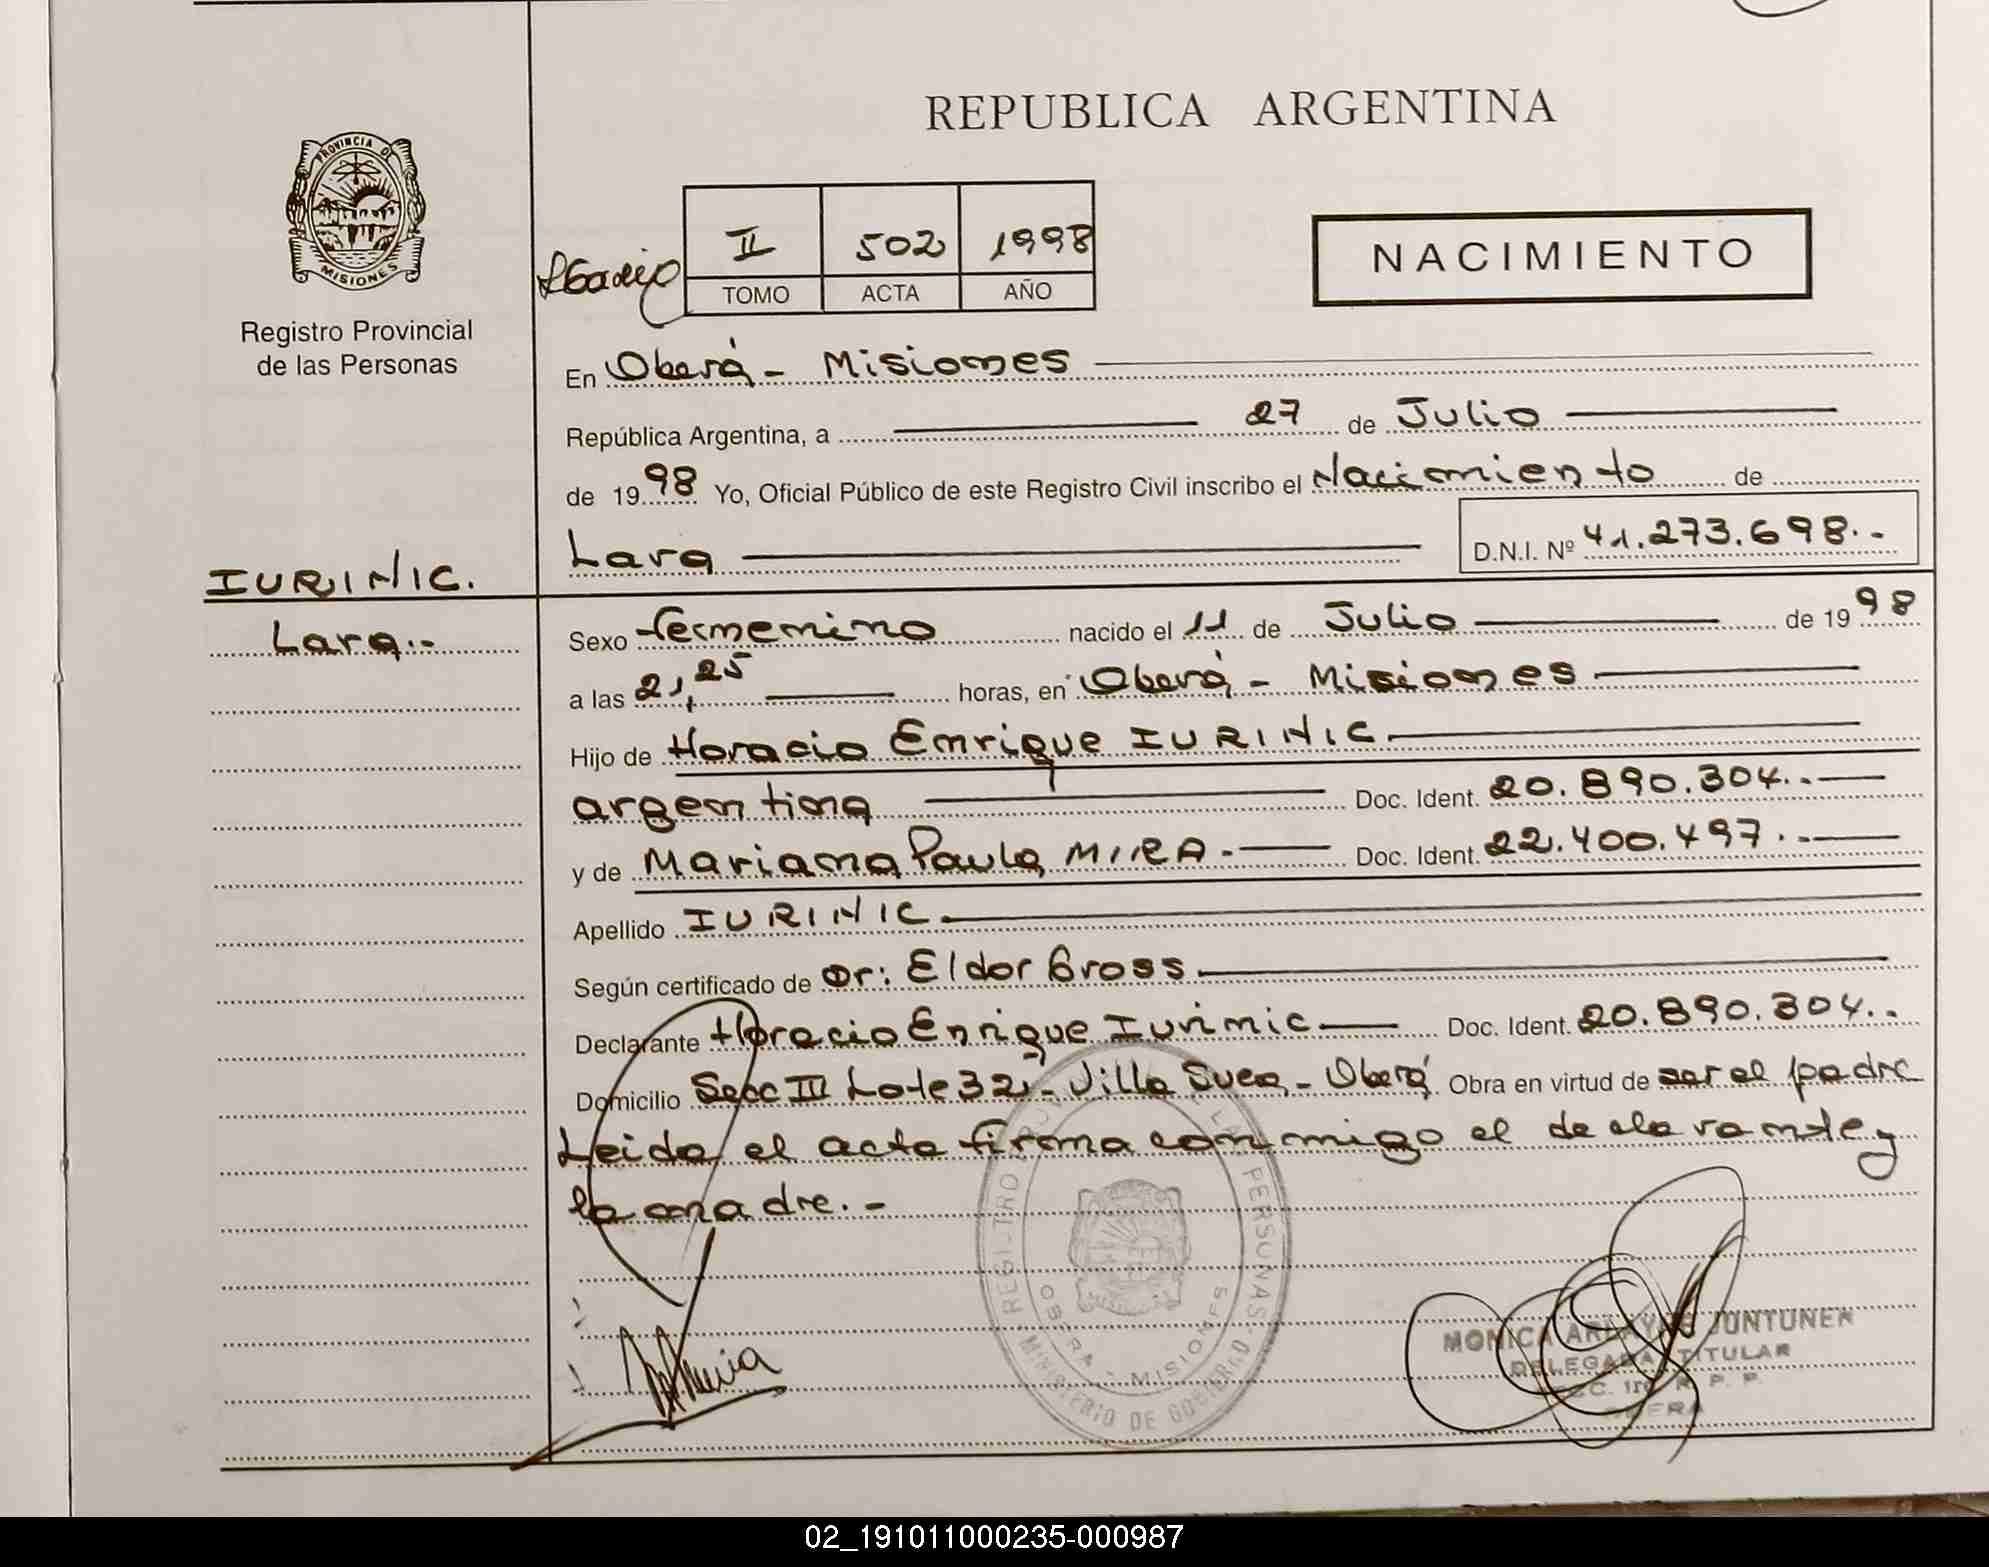 REPUBLICA ARGENTINA
PROVINCIA DE
MISIONES
Registro Provincial
de las Personas
II 502 1998
TOMO ACTA AÑO
NACIMIENTO
En Oberá - Misiones
República Argentina, a 27 de Julio
de 1998 Yo, Oficial Público de este Registro Civil inscribo el Nacimiento de
Lara D.N.I. Nº 41.273.698.-
IURINIC.
Lara.-
Sexo femenino nacido el 11 de Julio de 1998
a las 21,25 horas, en Oberá - Misiones
Hijo de Horacio Enrique IURINIC.
argentina Doc. Ident. 20.890.304.-
y de Mariana Paula MIRA.- Doc. Ident. 22.400.497.-
Apellido IURINIC.
Según certificado de Dr: Eldor Gross
Declarante Horacio Enrique Iurinic Doc. Ident. 20.890.304.-
Domicilio Secc III Lote 32.- Villa Svea.- Oberá Obra en virtud de ser el padre
Leida el acta firma conmigo el declarante y
la madre.-
REGISTRO PROV LAS PERSONAS
OBERA - MISIONES
MINISTERIO DE GOBIERNO
MONICA JUNTUNEN
DELEGADA TITULAR
R. P. P.
OBERA
02_191011000235-000987